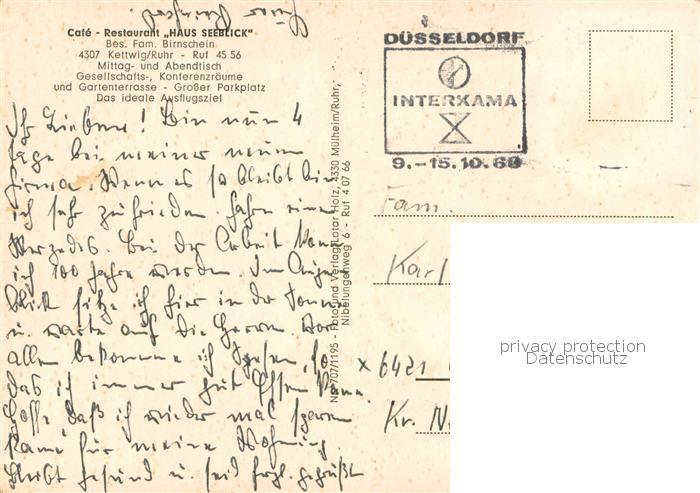 Café - Restaurant „HAUS SEEBLICK"
Bes. Fam. Birnschein
4307 Kettwig/Ruhr - Ruf 45 56
Mittag- und Abendtisch
Gesellschafts-, Konferenzräume
und Gartenterrasse - Großer Parkplatz
Das ideale Ausflugsziel
Ihr Lieben! Bin nun 4
Tage bei meiner neuen
Firma. Wenn es so bleibt bin
ich sehr zufrieden. Fahre einen
Merzedes. Bei der Arbeit kann
ich 100 Jahre werden. Im Augen
blick sitze ich hier in der Sonne
u. warte auf die Herren. Vor
allem bekomme ich Spesen, so
das ich immer gut Essen kann.
Hoffe, daß ich wieder mal sparen
kann für meine Wohnung.
Bleibt gesund u. seid herzl. gegrüßt
Euer
Nr. 707/1195 - Foto und Verlag Lotar Holz, 4330 Mülheim/Ruhr,
Nibelungenweg 6 - Ruf 4 07 66
DÜSSELDORF
INTERKAMA
9.-15.10.68
Fam.
Karl
x 6421
Kr.
privacy protection
Datenschutz